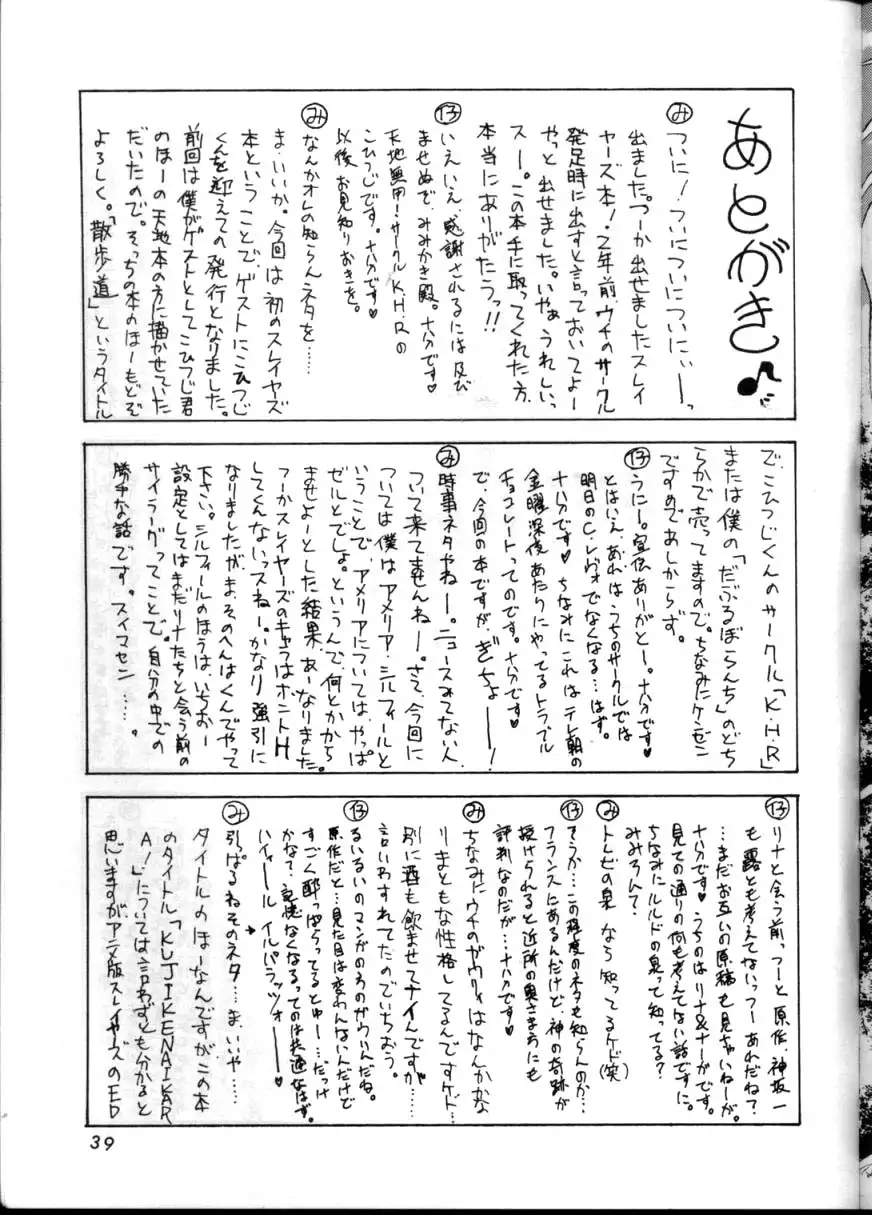 あとがき♪
み ついに!ついについについにぃーっ
出ました。つーか出せましたスレイ
ヤーズ本!2年前、ウチのサークル
発足時に出すと言っておいてよー
やっと出せました。いやぁうれしいっ
スー。この本手に取ってくれた方、
本当にありがたうっ!!
いえいえ、感謝されるには及び
ませぬで、みみかき殿。十八分です♥
天地無用!サークルK.H.Rの
こひつじです。十八分です♥
以後、お見知りおきを。
み なんかオレの知らんネタを……
ま、いいか。今回は初のスレイヤーズ
本ということで、ゲストにこひつじ
くんを迎えての発行となりました。
前回は僕がゲストとしてこひつじ君
のほーの天地本の方に描かせていた
だいたので。そっちの本のほーもどぞ
よろしく。「散歩道」というタイトル
で、こひつじくんのサークル「K・H・R」
または僕の「だぶるぼらんち」のどち
らかで売ってますので。ちなみにケンゼン
ですのであしからず。
うにー。宣伝ありがとー。十八分です♥
とはいえ、あれはうちのサークルでは
明日のC.レヴォでなくなる…はず。
十八分です♥ ちなみにこれはテレ朝の
金曜深夜あたりにやってるトラブル
チョコレートってのです。十八分です♥
で、今回の本ですが、ぎちょーーー!
み 時事ネタやねー。ニュースみてない人、
ついて来てませんねー。さて、今回に
ついては僕はアメリア・シルフィールと
いうことで、アメリアについては、やっぱ
ゼルとでしょ。というんで、何とかから
ませよーとした結果、あーなりました。
つーかスレイヤーズのキャラはホントH
してくんないっスねー。かなり強引に
なりましたが、ま、そのへんはくんでやって
下さい。シルフィールのほうは、いちおー
設定としてはまだリナたちと会う前の
サイラーグってことで。自分の中での
勝手な話です。スイマセン……。
リナと会う前っつーと原作、神坂一
も露とも考えてないっつーあれだね?
…まだお互いの原稿も見ちゃいねーが。
十八分です♥ うちのはリナ&ナーガです。
見ての通りの何も考えてない話ですに。
ちなみにルルドの泉って知ってる?
みみろんて?
み トレビの泉なら知ってるケド(笑)
そうか…この程度のネタも知らんのか…
フランスにあるんだけど、神の奇跡が
授けられると近所の奥さまにも
評判なのだが…十八分です♥
み ちなみにウチのガウリィはなんかかな
りまともな性格してるんですケド…
別に酒も飲ませてナイんですが……
言いわすれてたのでいちおう。
るいるいのマンガのあのガウリィんだね。
原作だと…見た目は変わんないんだけど
すごく酔っぱらってるとゆー…だっけ
かな?記憶なくなるってのは共通なはず。
ハイィール イルパラッツォーー♥
み 引っぱるねそのネタ…ま、いいや……
タイトルのほーなんですが、この本
のタイトル「KUJIKENAIKAR
A!」については言わずとも分かると
思いますがアニメ版スレイヤーズのED
39